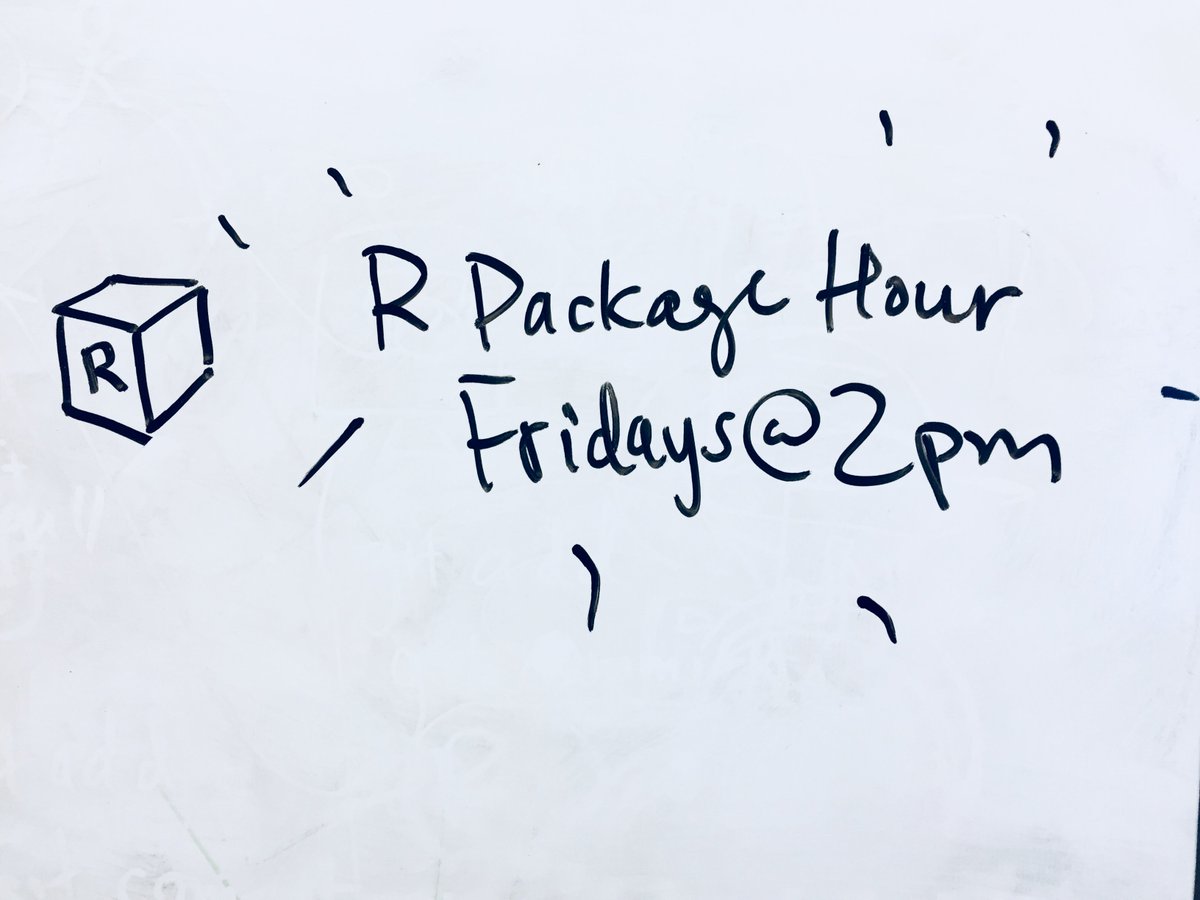 R Package Hour
R
Fridays@2pm